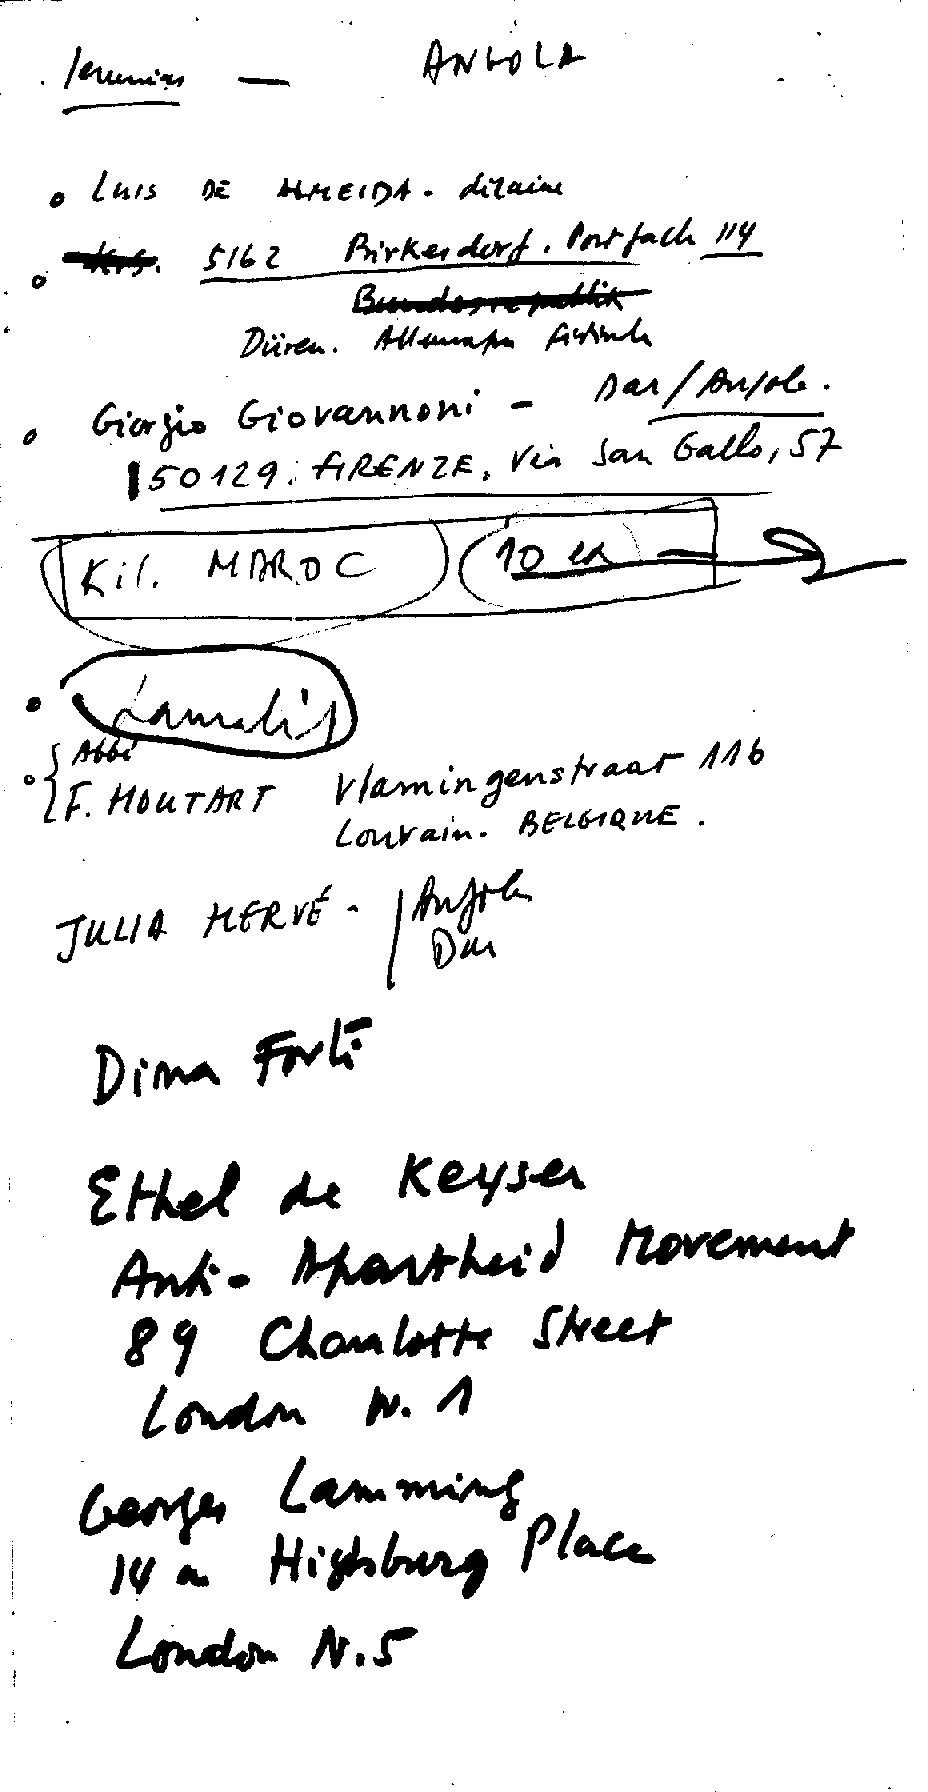 Jeremias — ANGOLA
LUIS DE ALMEIDA - dizaine
5162 Birkesdorf. Postfach 114
Bundesrepublik
Düren. Allemagne fédérale
Giorgio GIOVANNONI - Dar/Angola.
50129. FIRENZE, Via San Gallo, 57
Kil. MAROC 10 ex
Lamalif
Abbé
F. HOUTART Vlamingenstraat 116
Louvain. BELGIQUE.
JULIA HERVÉ - Angola
Dar
Dima Forti
Ethel de Keyser
Anti-Apartheid Movement
89 Charlotte Street
London W. 1
Georges Lamming
14 a Highburg Place
London N.5